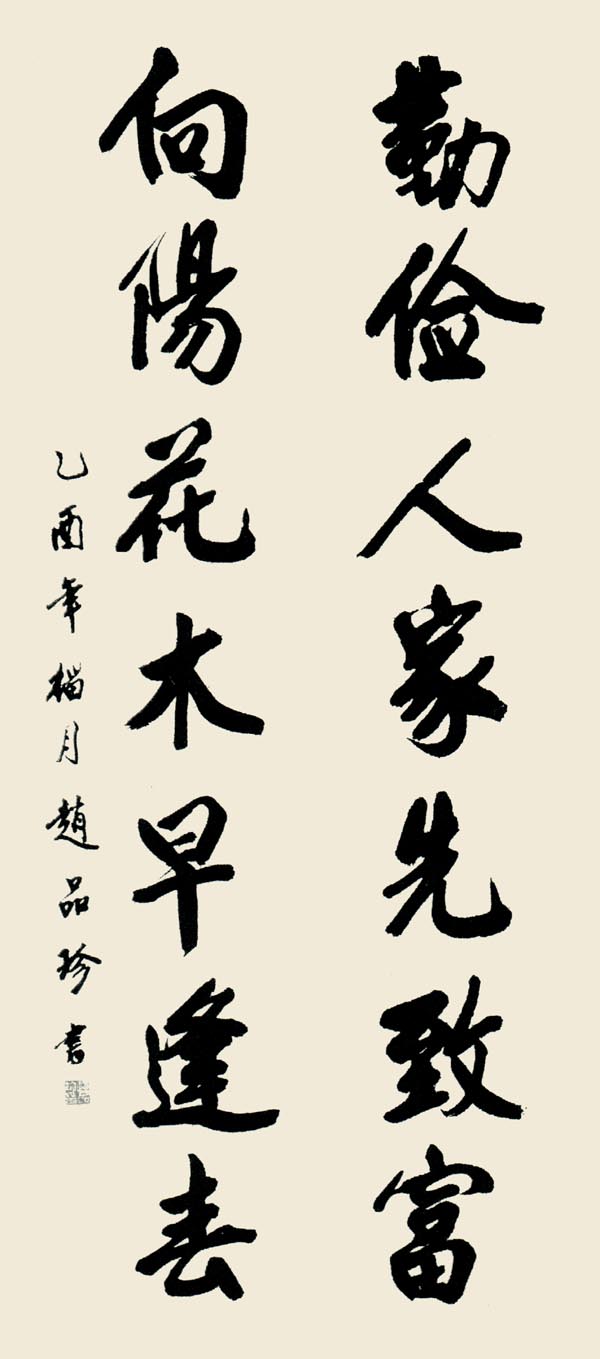 勤俭人家先致富
向陽花木早逢春
乙酉年榴月趙品珍書